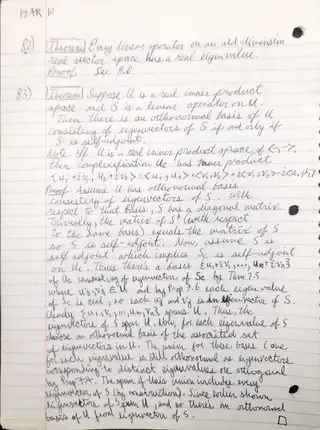 82) Theorem Every linear operator on an odd dimension
real vector space has a real eigenvalue.
Proof: See 8.6
83) Theorem Suppose U is a real inner product
space and S is a linear operator on U.
Then there is an orthonormal basis of U
consisting of eigenvectors of S if and only if
S is self-adjoint.
Note: If U is a real inner product space of <·,·>,
then complexification Uc has inner product
Proof Assume U has orthonormal basis
consisting of eigenvectors of S. With
respect to that basis, S has a diagonal matrix.
Trivially, the matrix of S* (with respect
to the same basis) equals the matrix of S
so S is self-adjoint. Now, assume S is
self adjoint which implies Sc is self-adjoint
on Uc. Thus there's a basis {u1+iv1, ..., un+ivn}
of Uc consisting of eigenvectors of Sc by Thm 7.25
where uj, vj ∈ U and by Prop 7.6 each eigenvalue
of Sc is real, so each uj and vj is an eigenvector of S.
Clearly {u1, v1, ..., un, vn} spans U. Thus, the
eigenvectors of S span U. Now, for each eigenvalue of S
choose an orthonormal basis of the associated set
of eigenvectors in U. The union for these bases (one
for each eigenvalue) is still orthonormal as eigenvectors
corresponding to distinct eigenvalues are orthogonal
by Prop 7.7. The span of this union includes every
eigenvector of S (by construction). Since earlier shown
eigenvectors of S span U, and so there's an orthonormal
basis of U from eigenvectors of S.